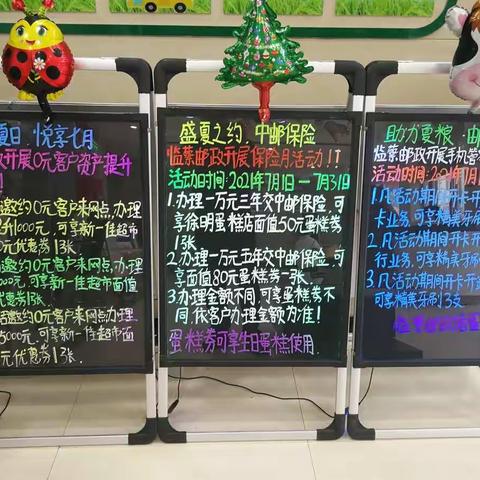 夏日·悦享七月
开展0元客户资产提升
邀约0元客户来网点,办理
升1000元,可享新一佳超市
元优惠券1张
邀约0元客户来网点,办理
000元,可享新一佳超市面值
优惠券1张
邀约0元客户来网点办理
5000元,可享新一佳超市面值
元优惠券1张.
盛夏之约、中邮保险
监蔡邮政开展保险月活动!!
活动时间:2021年7月1日—7月31日
1.办理一万元三年交中邮保险,可
享徐明蛋糕店面值50元蛋糕券
1张.
2.办理一万元五年交中邮保险,可
享面值80元蛋糕券一张.
3.办理金额不同,可享蛋糕券不
同,依客户办理金额为准!
蛋糕券可享生日蛋糕使用.
助力夏粮·邮
监蔡邮政开展手机
活动时间:2021年7月
1.凡活动期间开卡
卡业务,可享精美牙刷
2.凡活动期间开卡开
行业务,可享精美牙刷
3.凡活动期间开卡开
可享精美牙刷3支